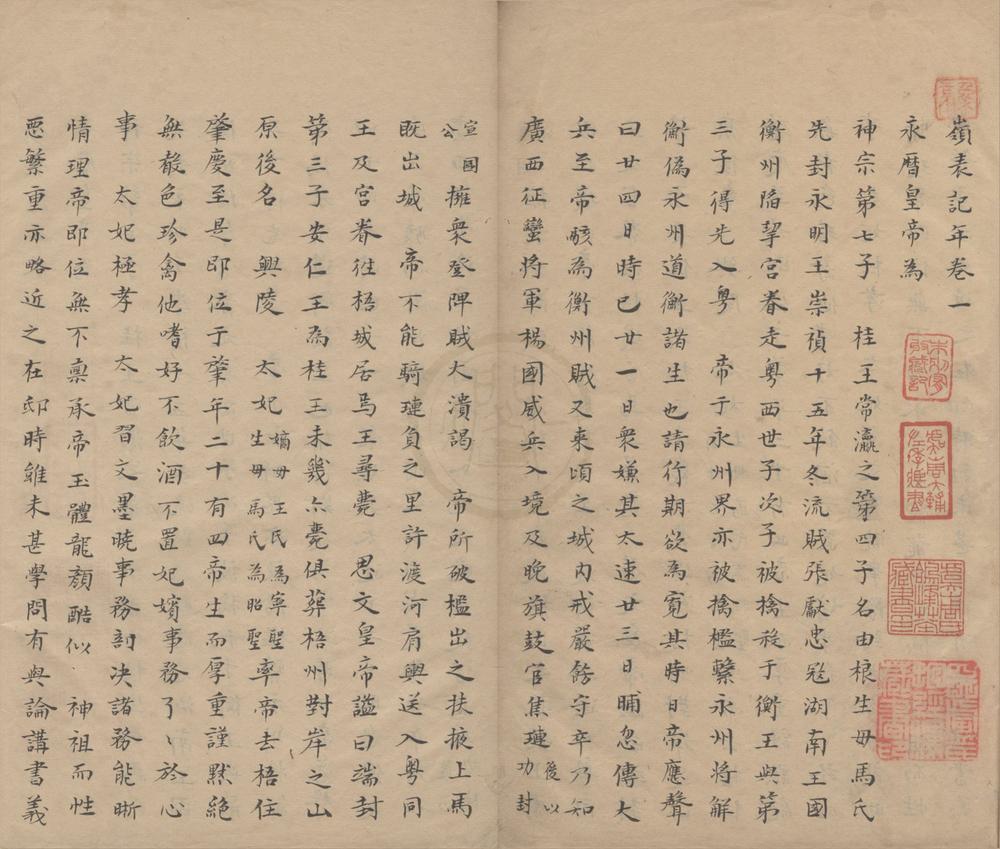 嶺表記年卷一
永曆皇帝為
神宗第七子 桂王常瀛之第四子名由榔生母馬氏
先封永明王崇禎十五年冬流賊張獻忠冦湖南王國
衡州陷挈宮眷走粵西世子次子被擒殺于衡王與第
三子得先入粵 帝于永州界亦被擒檻繫永州將解
衡偽永州道衡諸生也請行期欲為寬其時日帝應聲
曰廿四日時巳廿一日衆嫌其太速廿三日晡忽傳大
兵至帝駭為衡州賊又來頃之城內戒嚴餙守卒乃知
廣西征蠻將軍楊國威兵入境及晚旗鼓官焦璉後以功封
宣國公擁衆登陴賊大潰謁 帝所破檻出之扶掖上馬
既出城 帝不能騎璉負之里許渡河肩輿送入粵同
王及宮眷徃梧城居焉王尋薨 思文皇帝諡曰端封
第三子安仁王為桂王未幾亦薨俱葬梧州對岸之山
原後名 興陵 太妃嫡母王氏為寧聖生母馬氏為昭聖率帝去梧住
肇慶至是即位于肇年二十有四帝生而厚重謹默絕
無聲色珍禽他嗜好不飲酒不置妃嬪事務了〻於心
事 太妃極孝 太妃習文墨曉事務剖决諸務能晰
情理帝即位無不禀承帝玉體龍顏酷似 神祖而性
惡繁重亦略近之在邸時雖未甚學問有與論講書義